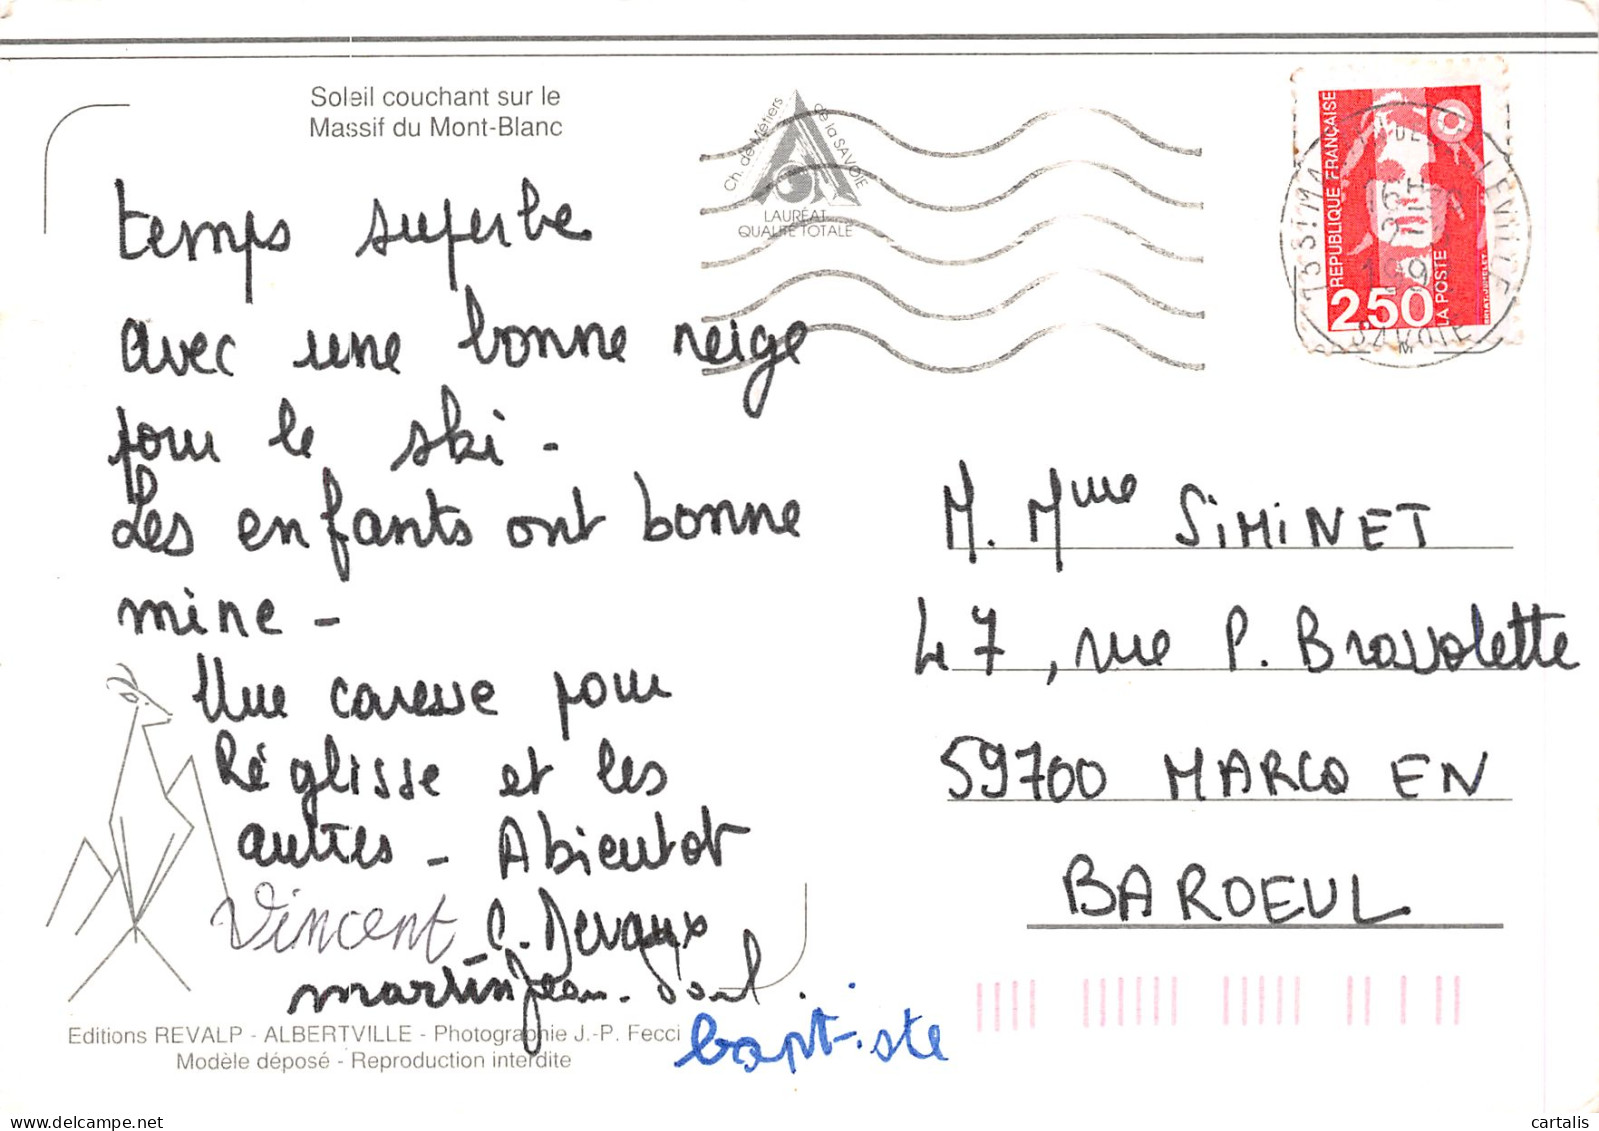 Soleil couchant sur le
Massif du Mont-Blanc
temps superbe
avec une bonne neige
pour le ski -
Les enfants ont bonne
mine -
Une caresse pour
Réglisse et les
autres - Abientot
Vincent C. Devaux
martin Jean-Paul.
baptiste
Editions REVALP - ALBERTVILLE - Photographie J.-P. Fecci
Modèle déposé - Reproduction interdite
Ch. de Métiers de la SAVOIE
LAURÉAT
QUALITÉ TOTALE
REPUBLIQUE FRANÇAISE
2,50
LA POSTE
SAVOIE
M. Mme SiMiNET
47, rue P. Bravolette
59700 MARCQ EN
BAROEUL
cartalis